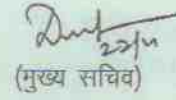 22/11
(मुख्य सचिव)